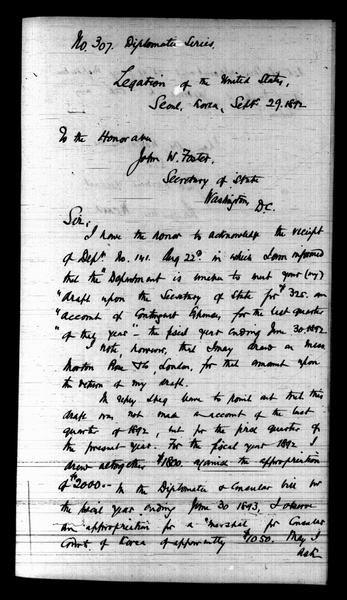 No. 307. Diplomatic Series.
Legation of the United States,
Seoul, Korea, Sept. 29. 1892
To the Honorable
John W. Foster,
Secretary of State
Washington,
D.C.
Sir,
I have the honor to acknowledge the receipt
of Dept. No. 141. Aug 22d. in which I am informed
that the "Department is unable to meet your (my)
"draft upon the Secretary of State for $325. on
"account of Contingent Expenses, for the last quarter
"of the year" – the fiscal year ending June 30. 1892.
I note, however, that I may draw on Messrs
Morton Rose & Co London, for that amount upon
the return of my draft.
In reply I beg leave to point out that this
draft was not made on account of the last
quarter of 1892, but for the first quarter of
the present year. For the fiscal year 1892 I
drew altogether $1800. against the appropriation
of $2000.– In the Diplomatic & Consular bill for
the fiscal year ending June 30 1893, I observe
an appropriation for a "Marshal for Consular
Court" of Korea of apparently $1050. May I
ask